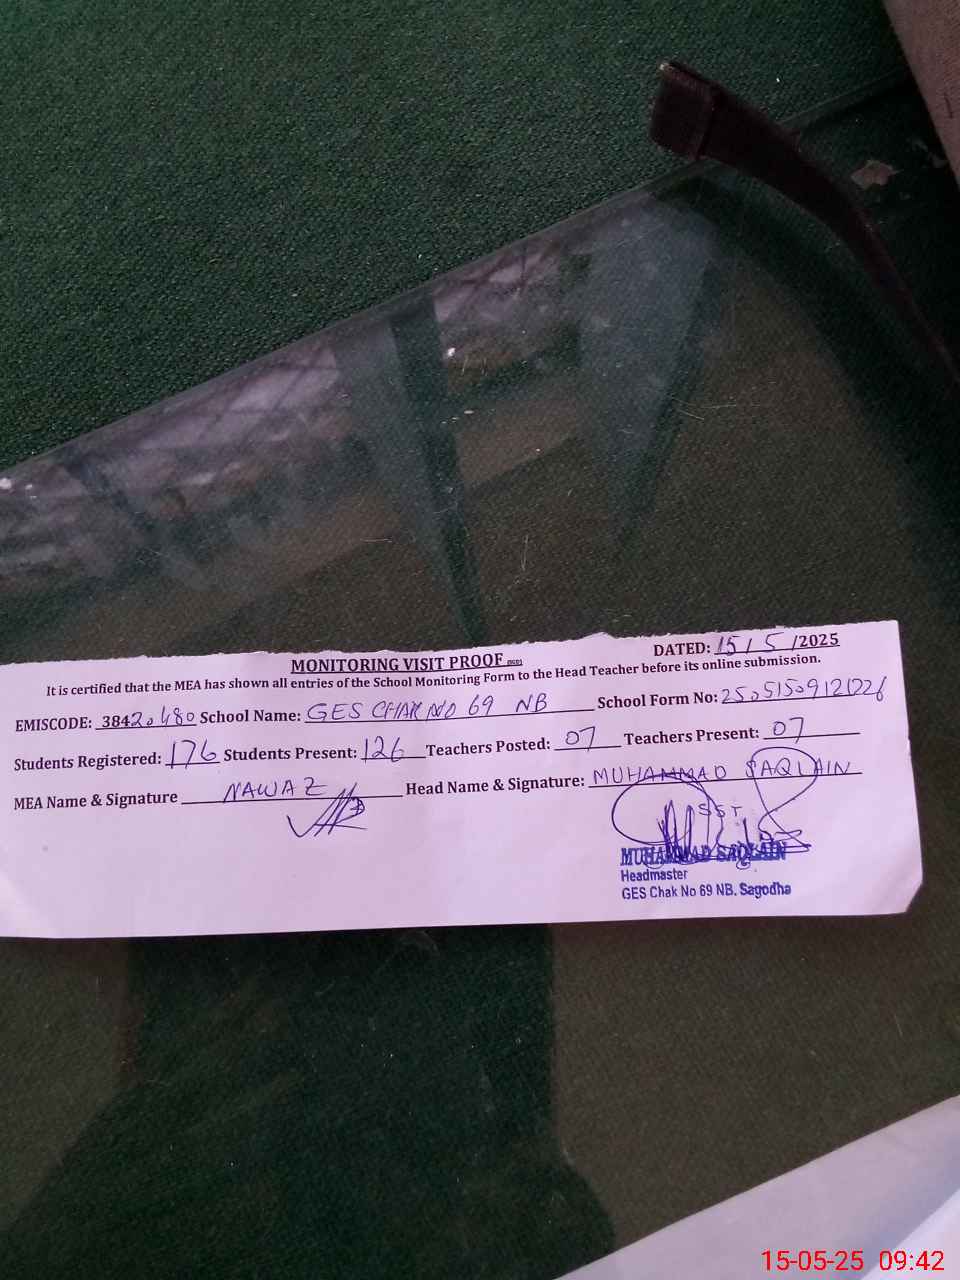 MONITORING VISIT PROOF
DATED: 15/5/2025
It is certified that the MEA has shown all entries of the School Monitoring Form to the Head Teacher before its online submission.
EMISCODE: 38420480 School Name: GES CHAK NO 69 NB School Form No:
Students Registered: 176 Students Present: 126 Teachers Posted: 07 Teachers Present: 07
MEA Name & Signature NAWAZ Head Name & Signature: MUHAMMAD SAQLAIN
SST
MUHAMMAD SAQLAIN
Headmaster
GES Chak No 69 NB. Sagodha
15-05-25 09:42